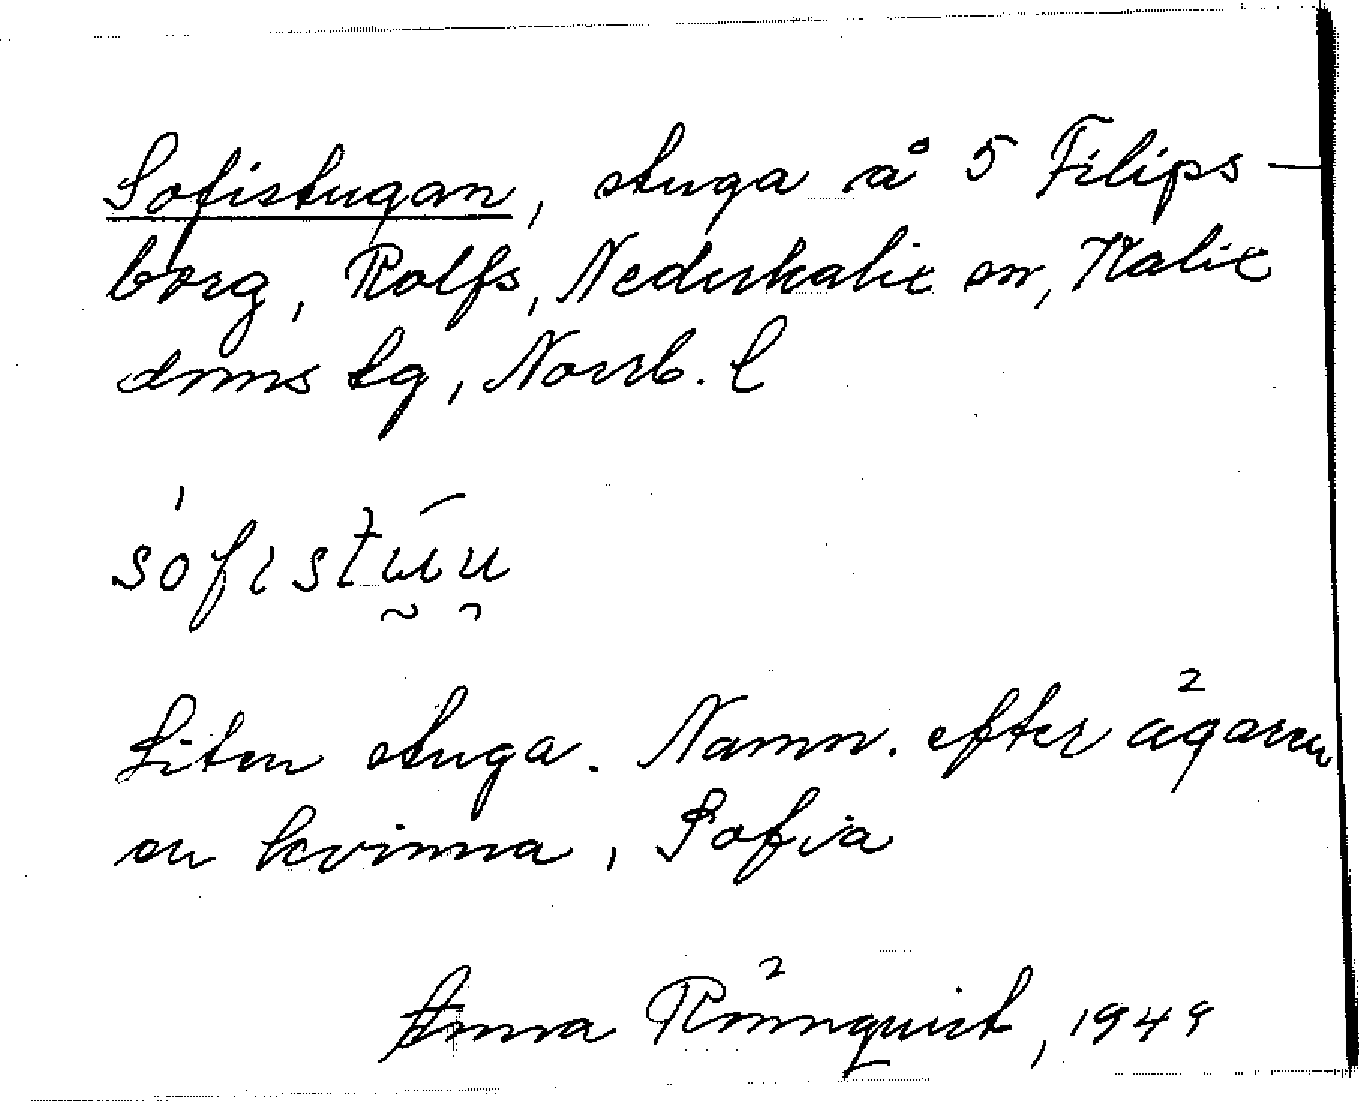 Sofistugan, stuga å 5 Filips-
borg, Rolfs, Nederkalix sn, Kalix
dmns tg, Norrb. l
sófistū́u
Liten stuga. Namn. efter ägaren
en kvinna, Sofia
Anna Rönnquist, 1949